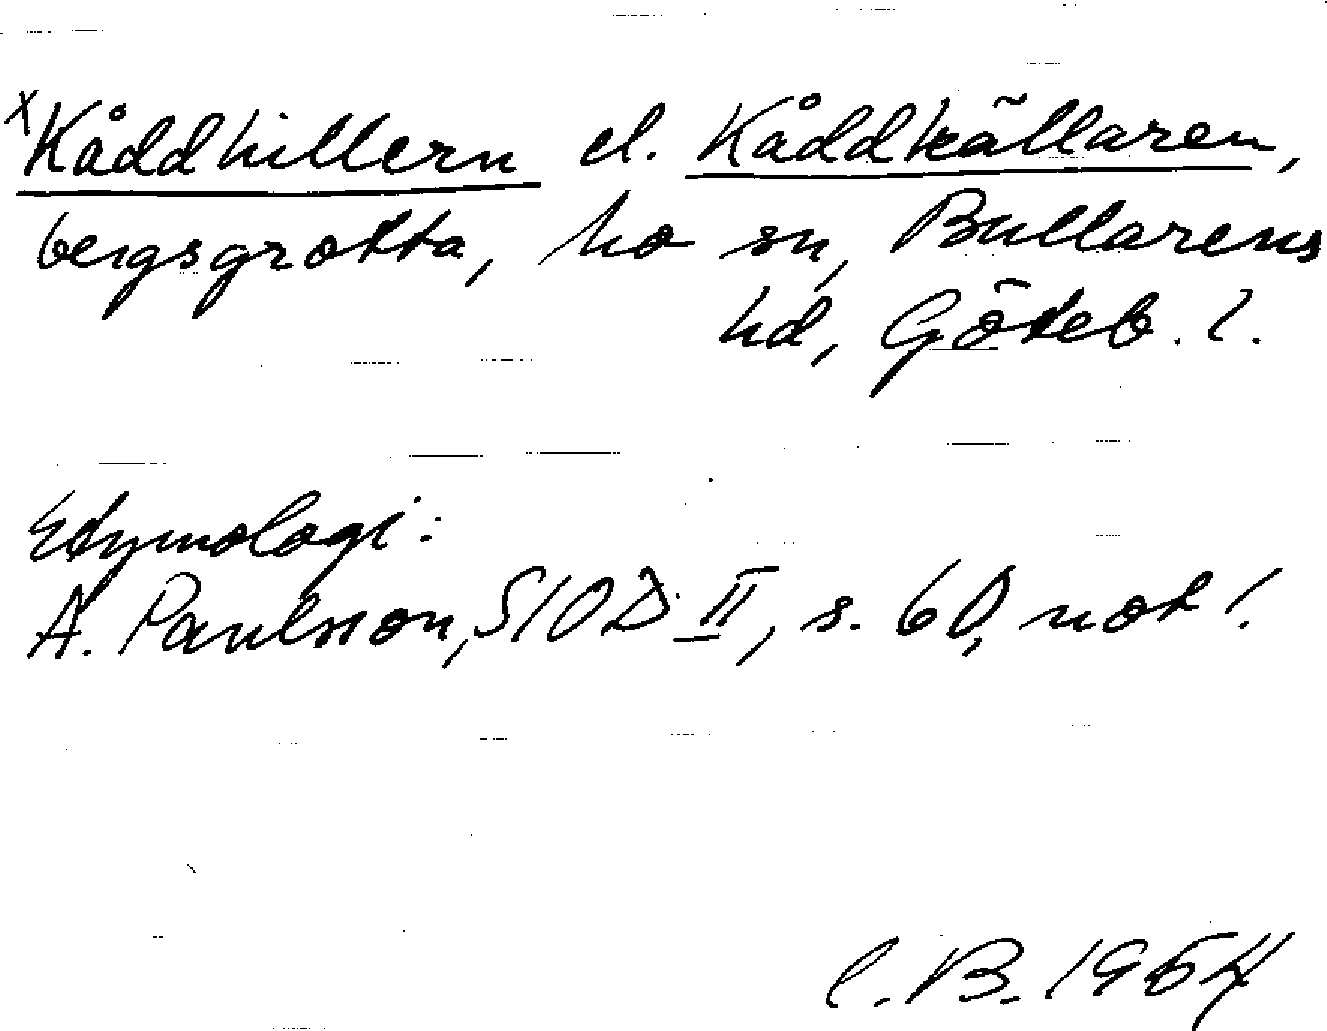 x Kåddhillern el. Kåddkällaren,
bergsgrotta, ho sn, Bullarens
hd, Göteb. l.
Etymologi:
A. Paulsson, SIOD II, s. 60, not 1.
C.B. 1954